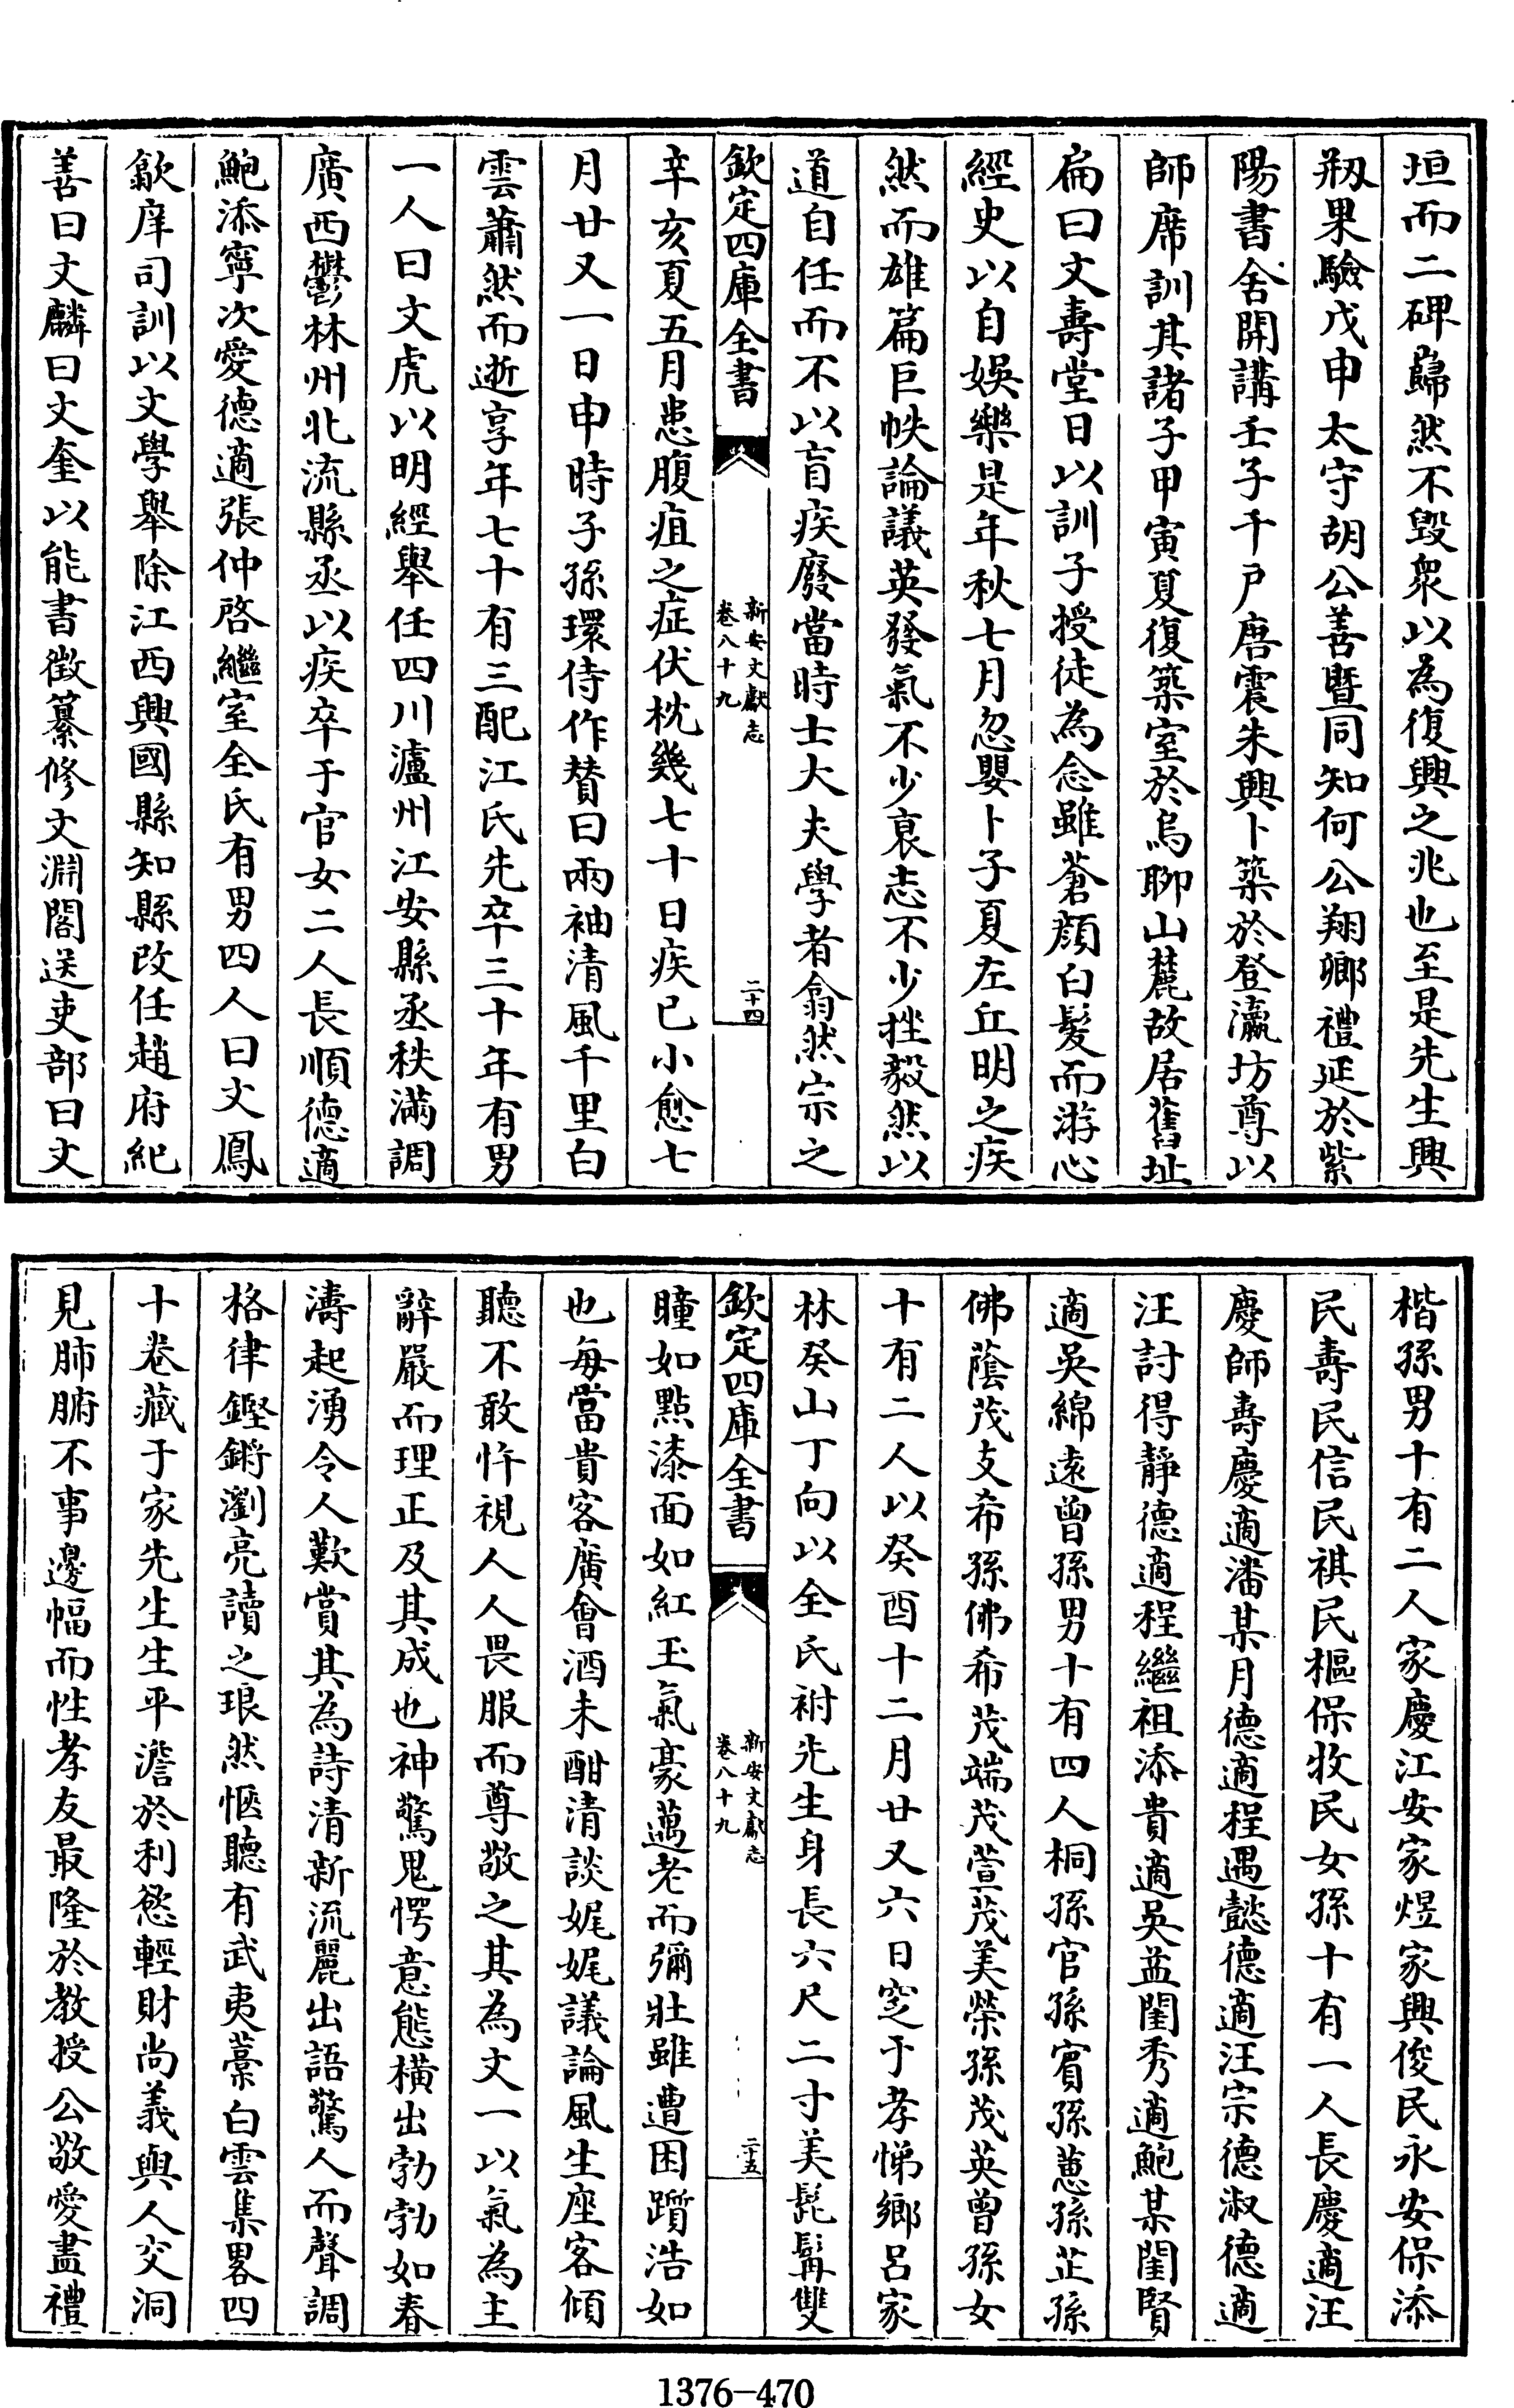 垣而二碑巋然不毁衆以為復興之兆也至是先生興
剏果驗戊申太守胡公善暨同知何公翔卿禮延於紫
陽書舍開講壬子千戶唐震朱興卜築於登瀛坊尊以
師席訓其諸子甲寅夏復築室於烏聊山麓故居舊址
扁曰文壽堂日以訓子授徒為念雖蒼顔白髮而游心
經史以自娛樂是年秋七月忽嬰卜子夏左丘明之疾
然而雄篇巨帙論議英發氣不少衰志不少挫毅然以
道自任而不以盲疾廢當時士大夫學者翕然宗之
欽定四庫全書
新安文獻志
卷八十九
二十四
辛亥夏五月患腹疽之症伏枕幾七十日疾已小愈七
月廿又一日申時子孫環侍作賛曰兩袖清風千里白
雲蕭然而逝享年七十有三配江氏先卒三十年有男
一人曰文虎以明經舉任四川瀘州江安縣丞秩滿調
廣西鬱林州北流縣丞以疾卒于官女二人長順德適
鮑添寧次愛德適張仲啓繼室全氏有男四人曰文鳳
歙庠司訓以文學舉除江西興國縣知縣改任趙府紀
善曰文麟曰文奎以能書徴纂修文淵閣送吏部曰文
楷孫男十有二人家慶江安家煜家興俊民永安保添
民壽民信民祺民樞保牧民女孫十有一人長慶適汪
慶師壽慶適潘某月德適程遇懿德適汪宗德淑德適
汪討得靜德適程繼祖添貴適吳益閨秀適鮑某閨賢
適吳綿遠曾孫男十有四人桐孫官孫賓孫蕙孫芷孫
佛蔭茂支希孫佛希茂端茂萱茂美榮孫茂英曾孫女
十有二人以癸酉十二月廿又六日窆于孝悌鄉呂家
林癸山丁向以全氏祔先生身長六尺二寸美髭髯雙
欽定四庫全書
新安文獻志
卷八十九
二十五
瞳如點漆面如紅玉氣豪邁老而彌壯雖遭困躓浩如
也每當貴客廣會酒未酣清談娓娓議論風生座客傾
聽不敢忤視人人畏服而尊敬之其為文一以氣為主
辭嚴而理正及其成也神驚鬼愕意態横出勃勃如春
濤起湧令人歎賞其為詩清新流麗出語驚人而聲調
格律鏗鏘瀏亮讀之琅然愜聽有武夷藁白雲集畧四
十卷藏于家先生生平澹於利慾輕財尚義與人交洞
見肺腑不事邊幅而性孝友最隆於教授公敬愛盡禮
1376-470